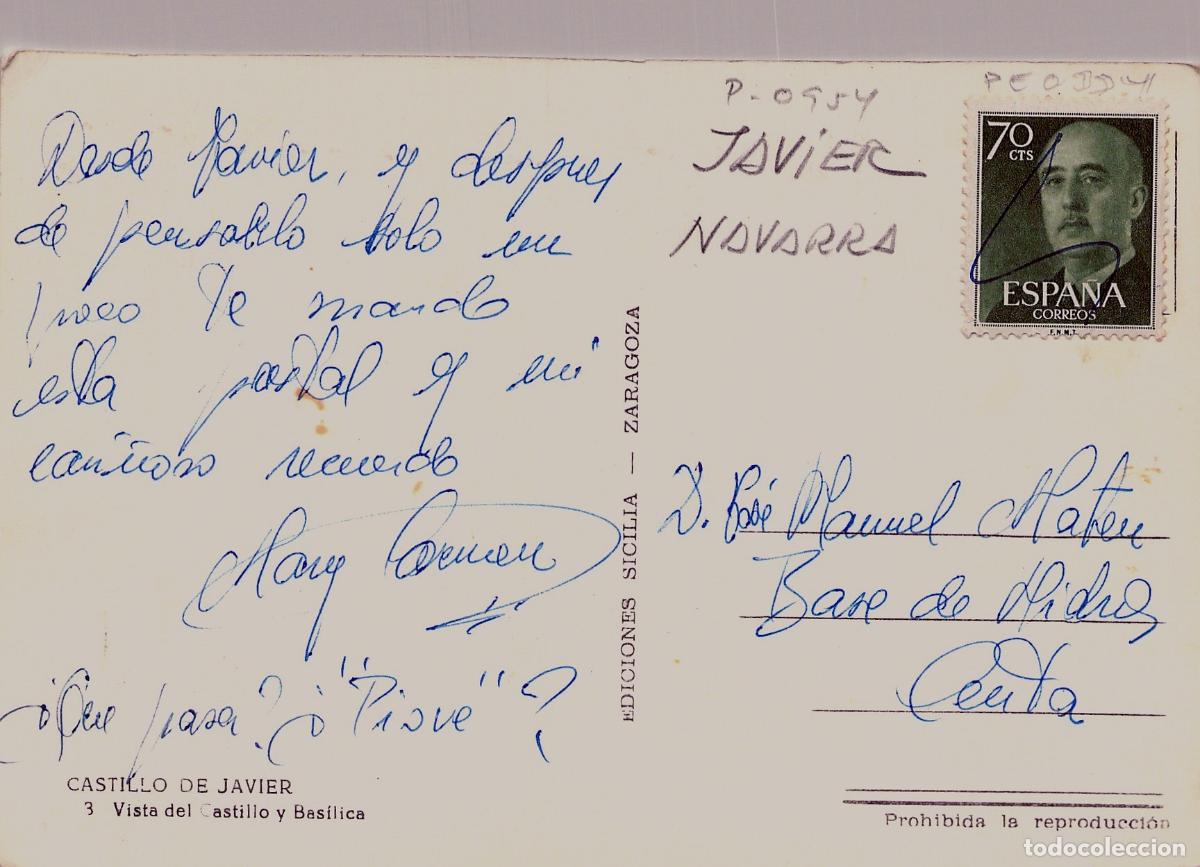 Desde Javier, y despues
de pensatelo solo un
poco te mando
esta postal y mi
cariñoso recuerdo
Mary Carmen
¿Que pasa? ¿"Piove"?
CASTILLO DE JAVIER
3 Vista del Castillo y Basílica
EDICIONES SICILIA — ZARAGOZA
P-0954
JAVIER
NAVARRA
70
CTS
ESPAÑA
CORREOS
F.N.M.T.
D. José Manuel Mateu
Base de Hidros
Ceuta
Prohibida la reproducción
todocoleccion